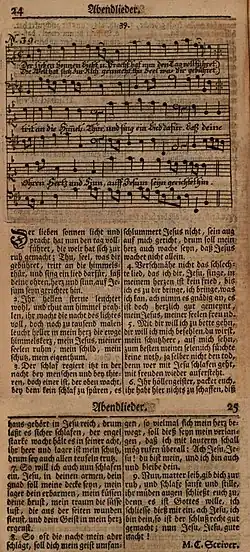 24 Abendlieder.
39.
N. 39.
Der lieben Sonnen Licht u. Pracht hat nun den Tag vollführet
Die Welt hat sich zur Ruh gemacht thu Seel was dir gebühret
trit an die Himels-Thür, und sing ein Lied dafür. laß deine
Ohren Hertz und Sinn, auff Jesum seyn gerichtet hin
Der lieben sonnen licht und
pracht hat nun den tag voll-
führet, die welt hat sich zur
ruh gemacht; Thu, seel, was dir
gebühret, tritt an die himmels-
thür, und sing ein lied dafür, laß
deine ohren, hertz und sinn, auf Je-
sum seyn gerichtet hin.
2. Ihr hellen sterne leuchtet
wohl, und thut am himmel prah-
len, ihr macht die nacht des lichtes
voll, doch noch zu tausend malen
leucht heller in mein hertz die ewge
himmelskertz, mein Jesus, meiner
seelen ruhm, mein schild, mein
schutz, mein eigenthum.
3. Der schlaf regiert ist in der
nacht bey menschen und bey thie-
ren, doch einer ist, der oben wacht,
bey dem kein schlaf zu spüren, es
schlummert Jesus nicht, sein aug
auf mich gericht, drum soll mein
hertz auch wache seyn, daß Jesus
wachet nicht allein.
4. Verschmähe nicht das schlech-
te lied, das ich dir, Jesu, singe, in
meinem hertzen ist kein fried, bis
ich es zu dir bringe, ich bringe, was
ich kan, ach nimm es gnädig an, es
ist doch hertzlich gut gemeint,
Jesu, meiner seelen freund.
5. Mit dir will ich zu bette gehn,
dir will ich mich befehlen, du wirst,
mein schutzherr, auf mich sehn,
zum besten meiner seelen, ich fürchte
keine noth, ja selber nicht den tod,
denn wer mit Jesu schlafen geht,
mit freuden wieder auferstehet.
6. Ihr höllengeister, packet euch,
ihr habt hier nichts zu schaffen, diß
Abendlieder. 25
haus gehört in Jesu reich,
laßt es sicher schlafen, der engel
starcke wacht hält es in guter acht,
ihr heer und lager ist mein schutz,
drum sey auch allen teufeln trutz.
7. So will ich auch nun schlafen
ein, Jesu, in deinen armen, dein
gnad soll meine decke seyn, mein
lager dein erbarmen, mein küssen
deine brust, mein traum die süsse
lust, die aus der seiten wunden
fleust, und dein Geist in mein hertz
ergeust.
8. So oft die nacht mein ader
schlägt, soll dich mein geist umfan-
gen, so vielmal sich mein hertz be-
wegt, soll diß seyn mein verlan-
gen, daß ich mit lautem schall
mög rufen überall: Ach Jesu, Je-
su! du bist mein, und ich bin auch
und bleibe dein.
9. Nun, matter leib, gib dich zur
ruh, und schlafe sanft und stille,
ihr müden augen schließt euch zu,
denn es ist Gottes wille,
schliesse diß mit ein, ach Jesu, ich
bin dein, so ist der schluß recht gut
gemacht; nun Jesu, Jesu, gute
nacht!
M. C. Scriver.